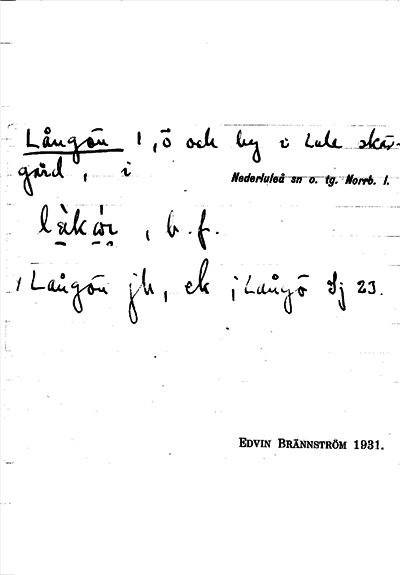 Långön 1, ö och by i Lule skär-
gård, i
Nederluleå sn o. tg. Norrb. l.
, b. f.
/ Långön jh, ek ; Långö Sj 23.
EDVIN BRÄNNSTRÖM 1931.